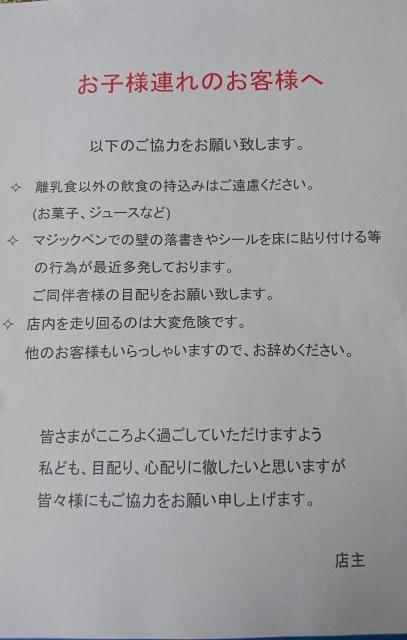 お子様連れのお客様へ
以下のご協力をお願い致します。
✧ 離乳食以外の飲食の持込みはご遠慮ください。
(お菓子、ジュースなど)
✧ マジックペンでの壁の落書きやシールを床に貼り付ける等
の行為が最近多発しております。
ご同伴者様の目配りをお願い致します。
✧ 店内を走り回るのは大変危険です。
他のお客様もいらっしゃいますので、お辞めください。
皆さまがこころよく過ごしていただけますよう
私ども、目配り、心配りに徹したいと思いますが
皆々様にもご協力をお願い申し上げます。
店主